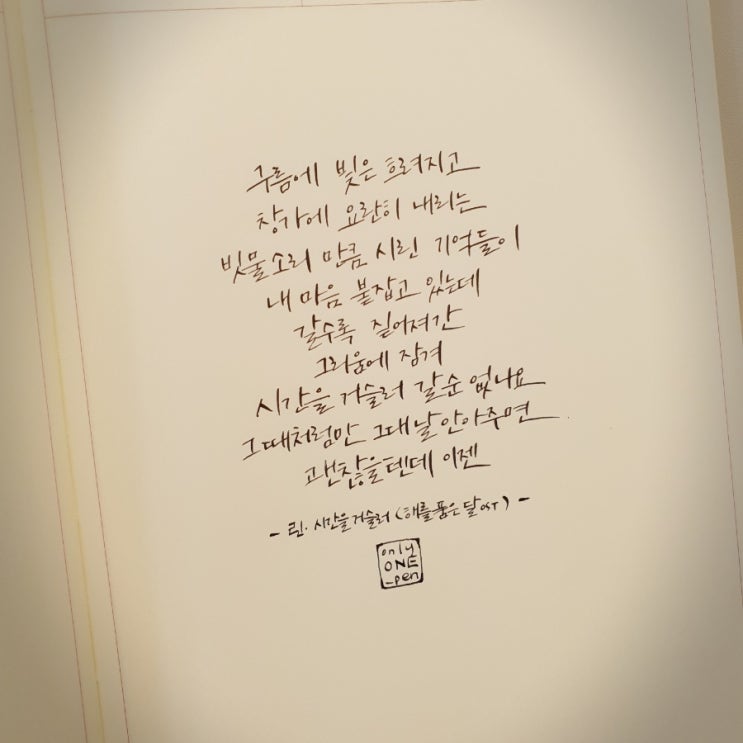 구름에 빛은 흐려지고
창가에 요란히 내리는
빗물소리 만큼 시린 기억들이
내 마음 붙잡고 있는데
갈수록 짙어져간
그리움에 잠겨
시간을 거슬러 갈순 없나요
그때처럼만 그대 날 안아주면
괜찮을텐데 이젠
- 린. 시간을 거슬러 (해를 품은 달 OST) -
only
ONE
-pen